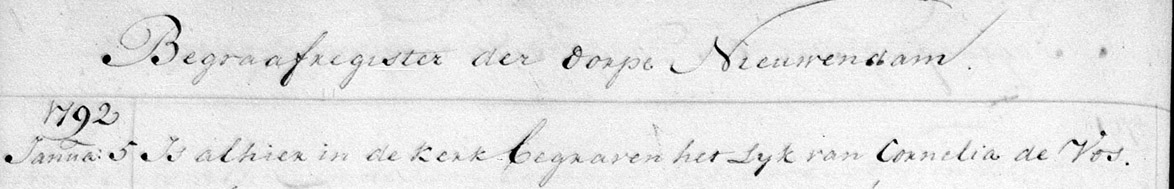 Begraafregister der dorpe Nieuwendam.
1792
Janua: 5 Is alhier in de kerk begraven het Lyk van Cornelia de Vos.